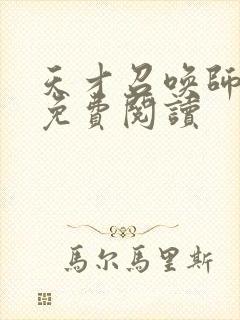 天才召喚師
免費閱讀
馬尔馬里斯